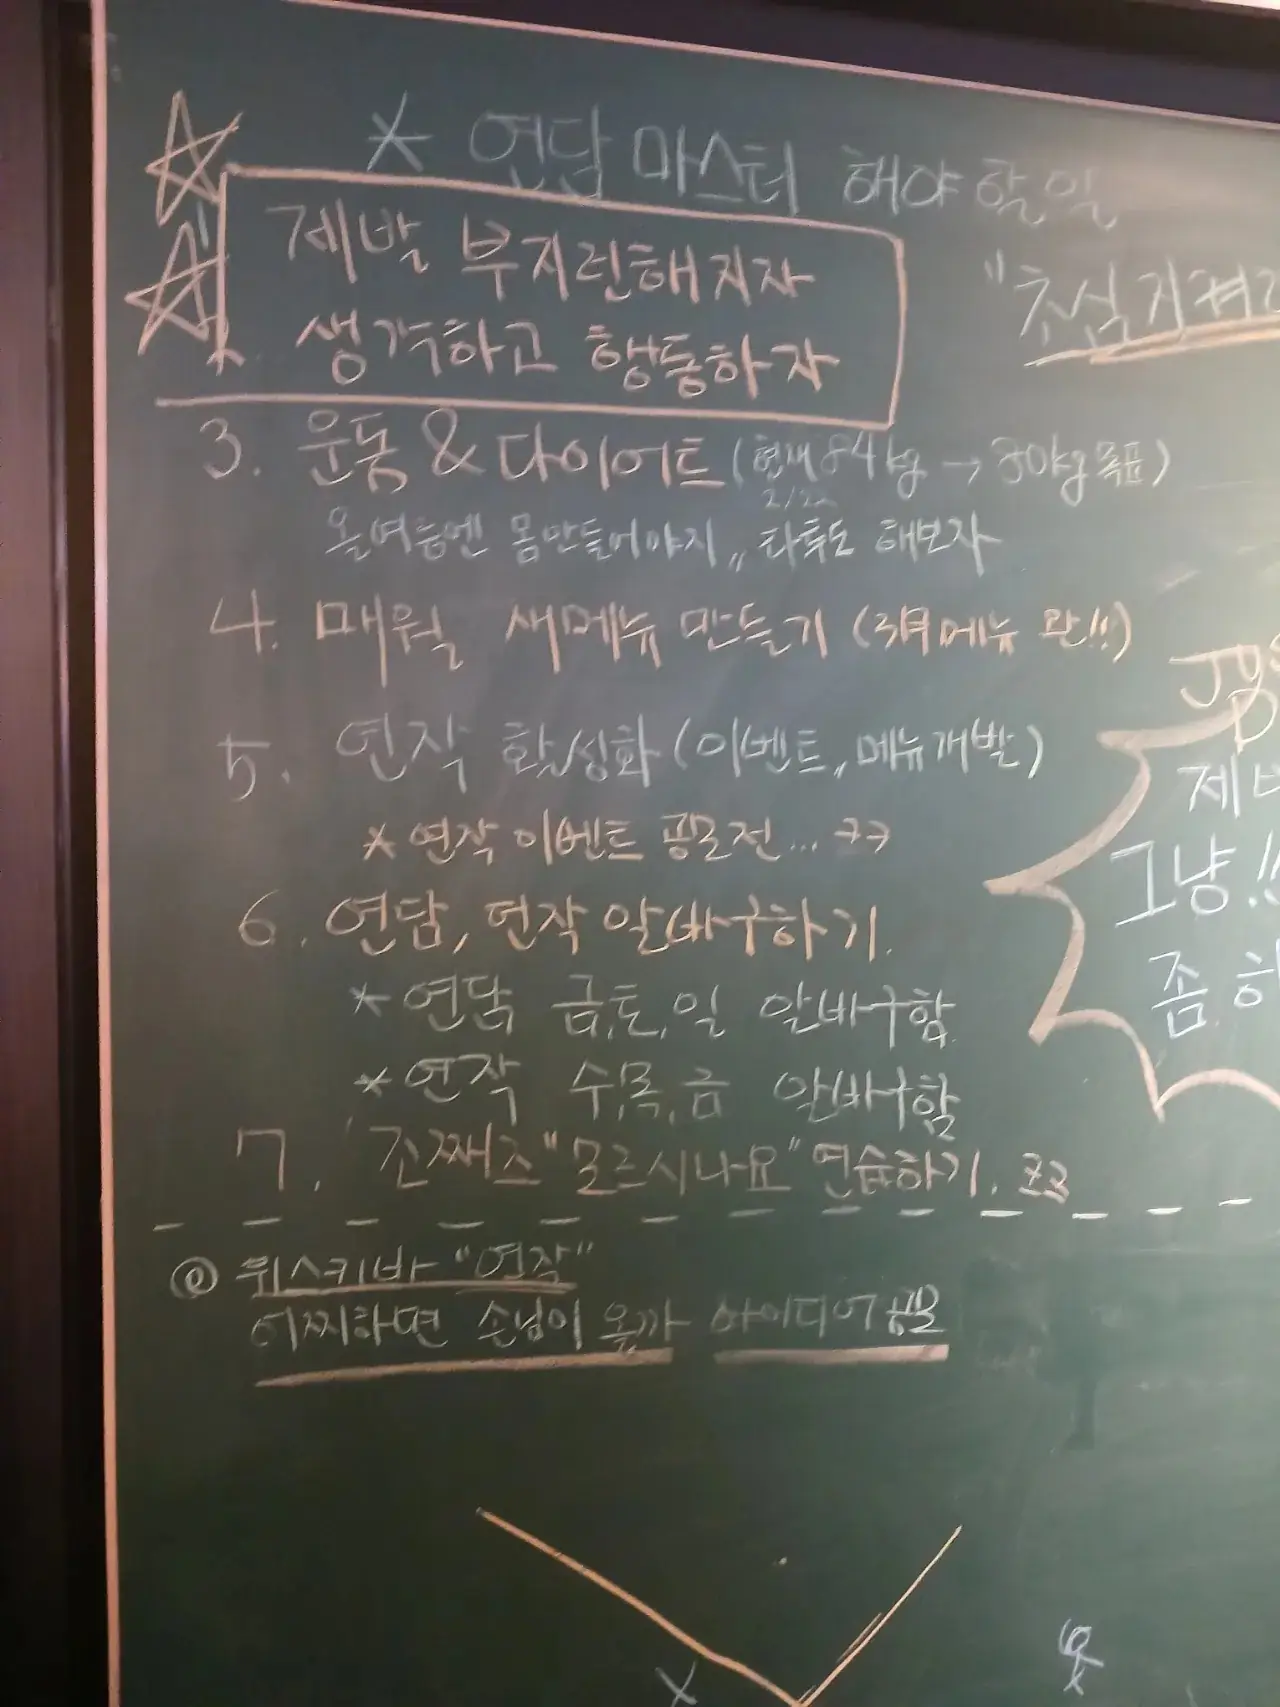 * 연담 마스터 해야할일
제발 부지런해지자
생각하고 행동하자
"초심지켜라
3. 운동 & 다이어트 (현재 84kg → 70kg 목표)
2/22
올여름엔 몸만들어야지,, 타투도 해보자
4. 매월 새메뉴 만들기 (3月메뉴 완!!)
5. 연작 활성화 (이벤트, 메뉴개발)
* 연작 이벤트 공모전... ㅋㅋ
6. 연담, 연작 알바구하기.
* 연담 금,토,일 알바구함
* 연작 수,목,금 알바구함
7. 조째즈 "모르시나요" 연습하기. ㅋㅋ
제
그냥!!
좀 하
@ 위스키바 "연작"
어찌하면 손님이 올까 아이디어 공모